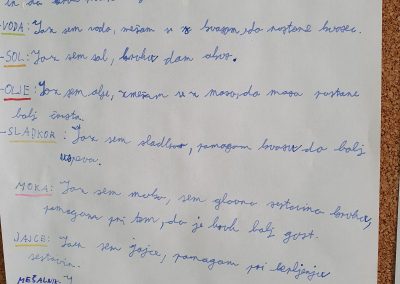 -VODA: Jaz sem voda, mešam v kvasom, da nastane kvasec.
-SOL: Jaz sem sol, kruhu dam okus.
-OLJE: Jaz sem olje, zmešam se z maso, da masa postane
bolj čvrsta.
-SLADKOR: Jaz sem sladkor, pomagam kvasu da bolj
uspeva.
MOKA: Jaz sem moka, sem glavna sestavina kruha,
pomagam pri tem, da je kruh bolj gost.
JAJCE: Jaz sem jajce, pomagam pri
sestavin.
MEŠALNIK: J